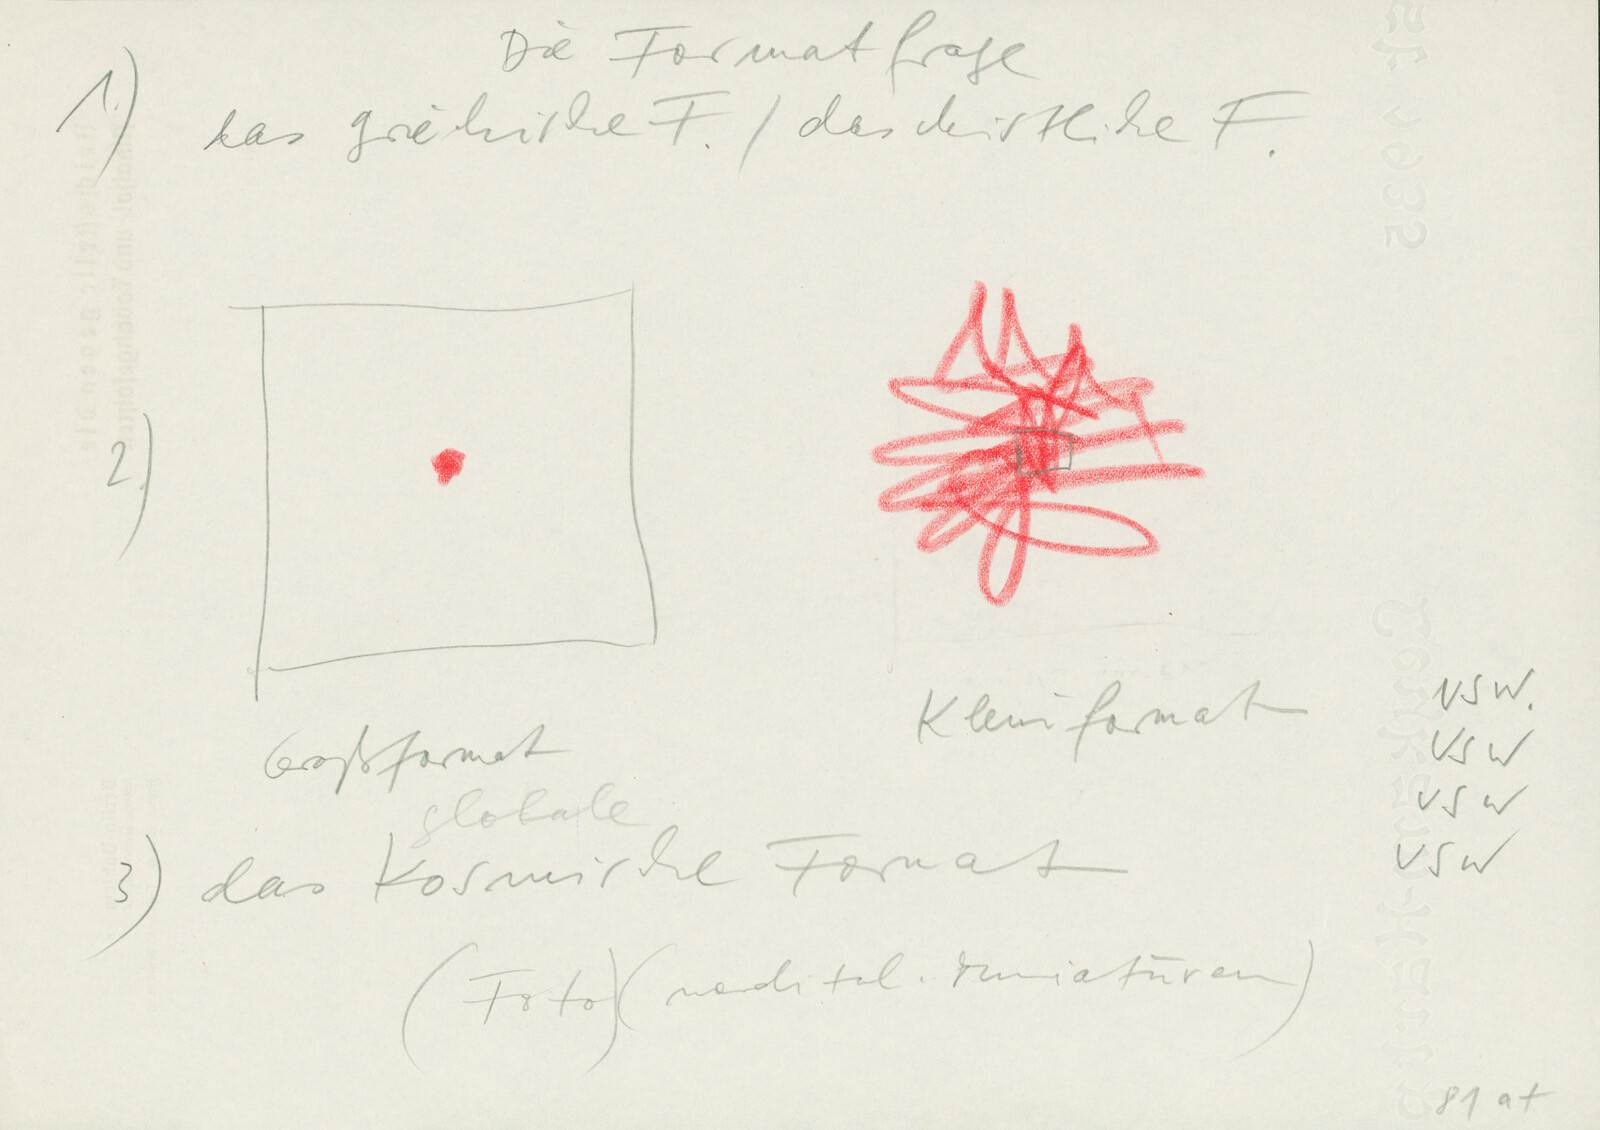 Die Formatfrage
1.) das griechische F. / das christliche F.
2.)
Großformat
Kleinformat
usw.
usw
usw
usw
globale
3) das kosmische Format
(Foto) (nordital. Miniaturen)
81 at